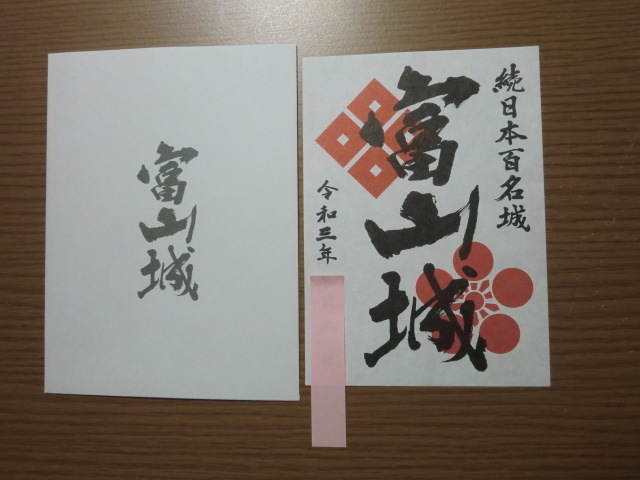 富山城
続日本百名城
富山城
令和三年